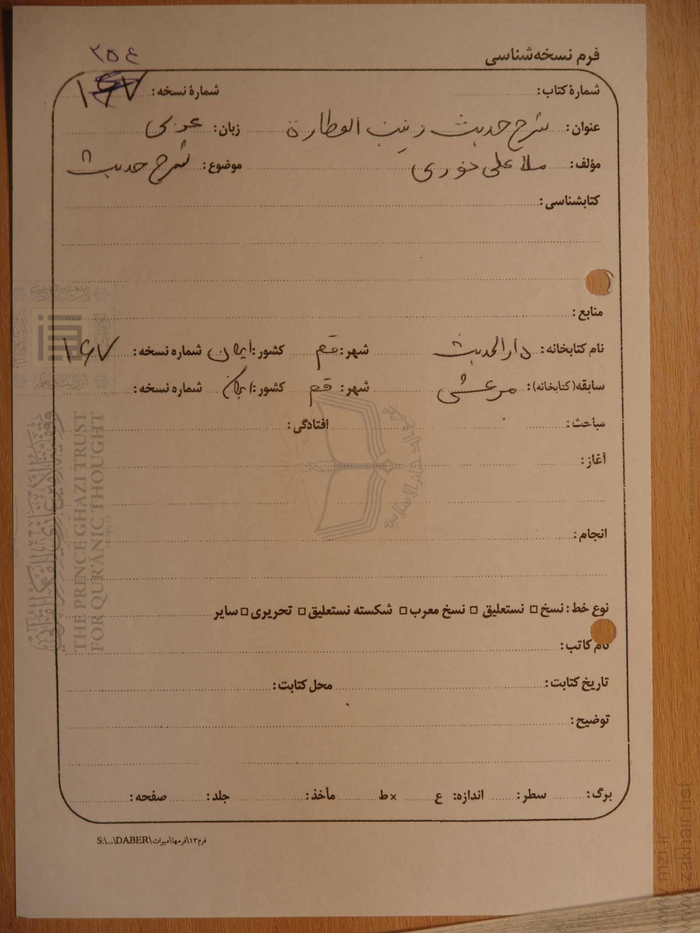 ۲۵۶
فرم نسخه‌شناسی
شمارهٔ کتاب: شمارهٔ نسخه: ۱۶۷
عنوان: شرح حدیث زینب العطارة زبان: عربی
مؤلف: ملا علی نوری موضوع: شرح حدیث
کتابشناسی:
منابع:
نام کتابخانه: دارالحدیث شهر: قم کشور: ایران شماره نسخه: ۱۶۷
سابقه(کتابخانه): مرعشی شهر: قم کشور: ایران شماره نسخه:
مباحث: افتادگی:
آغاز:
انجام:
نوع خط: نسخ □ نستعلیق □ نسخ معرب □ شکسته نستعلیق □ تحریری □ سایر
نام کاتب:
تاریخ کتابت: محل کتابت:
توضیح:
برگ: سطر: اندازه: ع × ط مأخذ: جلد: صفحه:
S:\...\DABER\میراث\فرمها\فرم۱۳
THE PRINCE GHAZI TRUST
FOR QUR'ANIC THOUGHT
www.mzi.ir
zakhair.net